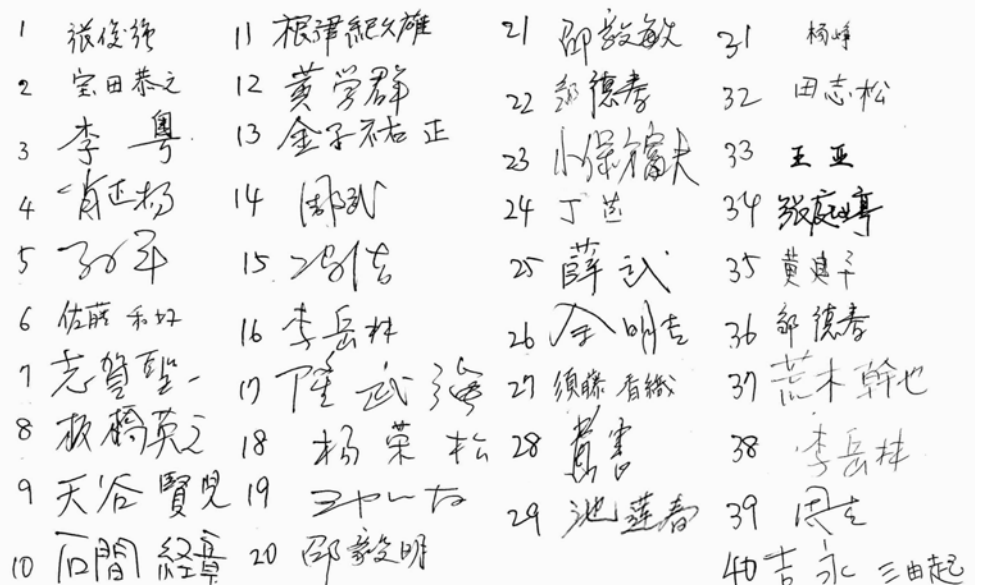 1 張俊強
2 宝田恭之
3 李粤
4 肖正杨
5
6 佐藤和好
7 志賀聖一
8 板橋英之
9 天谷賢児
10 石間経章
11 根津紀久雄
12 黄学群
13 金子祐正
14 周武
15 冯信
16 李岳林
17 隆武强
18 杨荣松
19
20 邵毅明
21 邵毅敏
22 邹德春
23 小保方富夫
24 丁
25 薛武
26 余明志
27 須藤香織
28
29 池莲春
31 杨峥
32 田志松
33 王亚
34 张庭婷
35 黄良子
36 邹德春
37 荒木幹也
38 李岳林
39 周志
40 吉永三由起